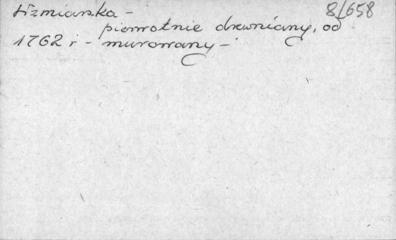 Iłżmianka - 8/658
pierwotnie drewniany, od
1762 r - murowany -